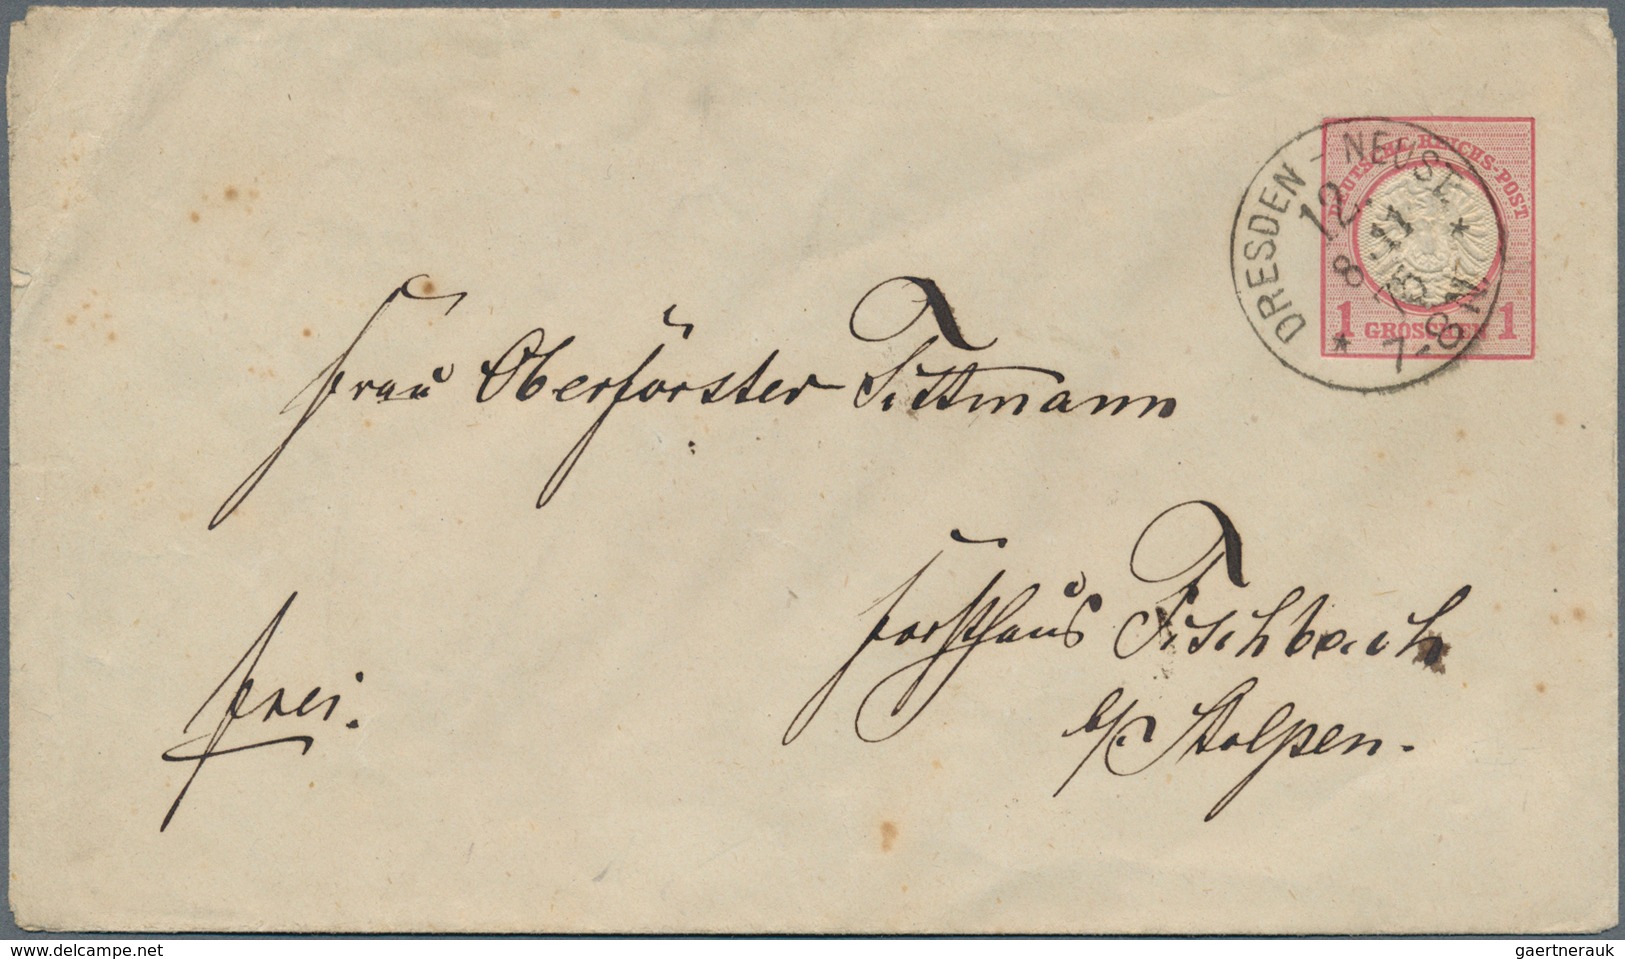 DEUTSCHE REICHS-POST
1 GROSCHEN 1
DRESDEN-NEUST.
12.
8 11
7-8 N.
Frau Oberförster Tittmann
Forsthaus Fischbach
b/ Stolpen.
frei.
delcampe.net
gaertnerauk